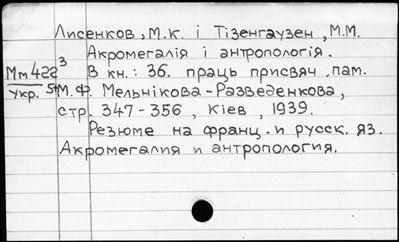 Лисенков, М.К. і Тізенгаузен, М.М.
Акромегалія і антропологія.
Мм422³ В кн.: Зб. праць присвяч. пам.
Укр. 5 М.Ф. Мельнікова-Разведенкова,
стр. 347-356, Київ, 1939.
Резюме на франц. и русск. яз.
Акромегалия и антропология.